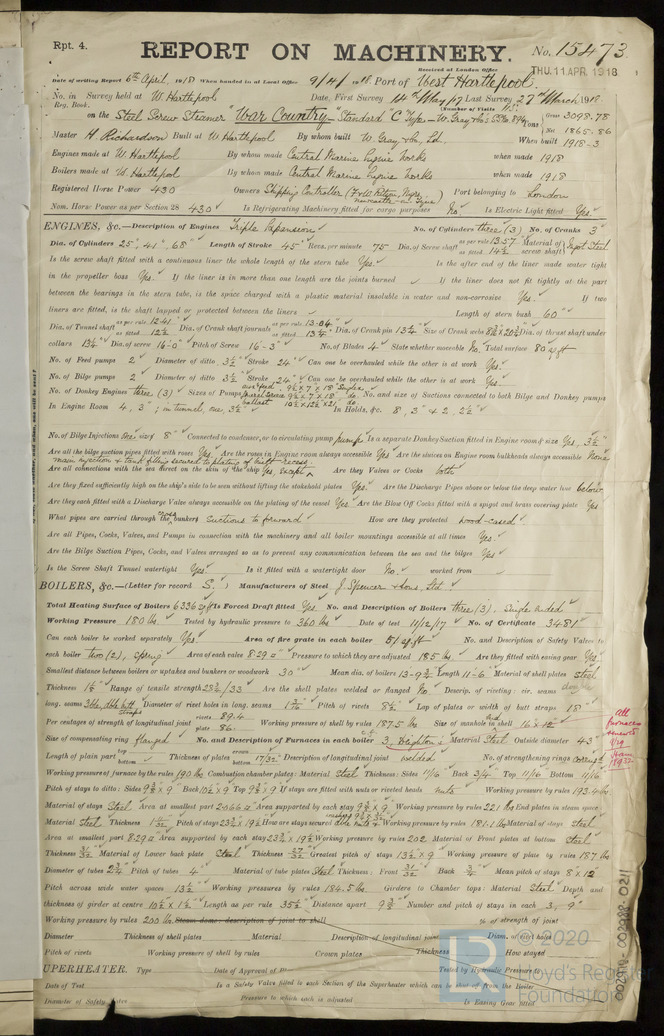 Rpt. 4.
REPORT ON MACHINERY.
No. 15473
Received at London Office THU. 11 APR. 1918
Date of writing Report 6th April 1918 When handed in at Local Office 9/4/1918 Port of West Hartlepool
No. in Survey held at W. Hartlepool Date, First Survey 14th May/17 Last Survey 27th March 1918
Reg. Book. (Number of Visits
on the Steel Screw Steamer "War Country" Standard "C" Type — W. Gray & Co's S.S. No. 894 Tons Gross 3098.78 Net 1865.86
Master H. Richardson Built at W. Hartlepool By whom built W. Gray & Co. Ld. When built 1918-3
Engines made at W. Hartlepool By whom made Central Marine Engine Works when made 1918
Boilers made at W. Hartlepool By whom made Central Marine Engine Works when made 1918
Registered Horse Power 430 Owners Shipping Controller Port belonging to London
Newcastle-on-Tyne
Nom. Horse Power as per Section 28 430 Is Refrigerating Machinery fitted for cargo purposes No. Is Electric Light fitted Yes.
ENGINES, &c.—Description of Engines Triple Expansion No. of Cylinders three (3) No. of Cranks 3
Dia. of Cylinders 25", 41", 68" Length of Stroke 45" Revs. per minute 75 Dia. of Screw shaft as per rule 13.57 as fitted 14½ Material of screw shaft Ingot Steel
Is the screw shaft fitted with a continuous liner the whole length of the stern tube Yes. Is the after end of the liner made water tight
in the propeller boss Yes. If the liner is in more than one length are the joints burned If the liner does not fit tightly at the part
between the bearings in the stern tube, is the space charged with a plastic material insoluble in water and non-corrosive Yes. If two
liners are fitted, is the shaft lapped or protected between the liners Length of stern bush 60"
Dia. of Tunnel shaft as per rule 12.41 as fitted 12½ Dia. of Crank shaft journals as per rule 13.04 as fitted 13¼ Dia. of Crank pin 13¼ Size of Crank webs Dia. of thrust shaft under
collars 13¼ Dia. of screw 16-0" Pitch of Screw 16-3" No. of Blades 4 State whether moveable No. Total surface 80 sq ft
No. of Feed pumps 2 Diameter of ditto 3½ Stroke 24" Can one be overhauled while the other is at work Yes.
No. of Bilge pumps 2 Diameter of ditto 3½ Stroke 24" Can one be overhauled while the other is at work Yes.
No. of Donkey Engines three (3) Sizes of Pumps No. and size of Suctions connected to both Bilge and Donkey pumps
In Engine Room 4, 3"; in tunnel, one, 3½" In Holds, &c. 8, 3" & 2, 2½"
No. of Bilge Injections One size 8" Connected to condenser, or to circulating pump pumps Is a separate Donkey Suction fitted in Engine room & size Yes, 3½"
Are all the bilge suction pipes fitted with roses Yes Are the roses in Engine room always accessible Yes Are the sluices on Engine room bulkheads always accessible None
Are all connections with the sea direct on the skin of the ship Yes, Except Are they Valves or Cocks both
Are they fixed sufficiently high on the ship's side to be seen without lifting the stokehold plates Yes. Are the Discharge Pipes above or below the deep water line below
Are they each fitted with a Discharge Valve always accessible on the plating of the vessel Yes Are the Blow Off Cocks fitted with a spigot and brass covering plate Yes
What pipes are carried through the bunkers Suctions to forward How are they protected Wood-cased
Are all Pipes, Cocks, Valves, and Pumps in connection with the machinery and all boiler mountings accessible at all times Yes
Are the Bilge Suction Pipes, Cocks, and Valves arranged so as to prevent any communication between the sea and the bilges Yes
Is the Screw Shaft Tunnel watertight Yes. Is it fitted with a watertight door No. worked from
BOILERS, &c.—(Letter for record S.) Manufacturers of Steel J. Spencer & Sons, Ltd.
Total Heating Surface of Boilers 6336 sq ft Is Forced Draft fitted Yes No. and Description of Boilers three (3). Single ended
Working Pressure 180 lbs. Tested by hydraulic pressure to 360 lbs Date of test 11/12/17 No. of Certificate 3481
Can each boiler be worked separately Yes. Area of fire grate in each boiler 51 sq. ft No. and Description of Safety Valves to
each boiler two (2), Spring Area of each valve 8.29 Pressure to which they are adjusted 185 lbs. Are they fitted with easing gear Yes.
Smallest distance between boilers or uptakes and bunkers or woodwork 30" Mean dia. of boilers 13-9¾ Length 11-6 Material of shell plates Steel
Thickness Range of tensile strength 28½/33 Are the shell plates welded or flanged No. Descrip. of riveting: cir. seams
long. seams Diameter of rivet holes in long. seams Pitch of rivets 8½ Lap of plates or width of butt straps 18"
Per centages of strength of longitudinal joint rivets 89.4 plate 86. Working pressure of shell by rules 187.5 lbs Size of manhole in shell 16 x 12
Size of compensating ring flanged No. and Description of Furnaces in each boiler 3, Deighton's Material Steel Outside diameter 43"
Length of plain part top bottom Thickness of plates crown bottom 17/32" Description of longitudinal joint welded No. of strengthening rings
Working pressure of furnace by the rules 190 lbs Combustion chamber plates: Material Steel Thickness: Sides 11/16 Back 3/4" Top 11/16 Bottom 11/16
Pitch of stays to ditto: Sides 9⅜ x 9" Back Top If stays are fitted with nuts or riveted heads nuts Working pressure by rules 193.4 lbs
Material of stays Steel Area at smallest part 2.066 Area supported by each stay Working pressure by rules 221 lbs End plates in steam space
Material Steel Thickness Pitch of stays How are stays secured Working pressure by rules 181.1 lbs Material of stays Steel
Area at smallest part 8.29 Area supported by each stay Working pressure by rules 202 Material of Front plates at bottom Steel
Thickness 31/32 Material of Lower back plate Steel Thickness 27/32 Greatest pitch of stays 13½ x 9 Working pressure of plate by rules 187 lbs
Diameter of tubes 2¾ Pitch of tubes 4 Material of tube plates Steel Thickness: Front 31/32 Back 3/4 Mean pitch of stays 8 x 12
Pitch across wide water spaces 13½ Working pressures by rules 184.5 lbs. Girders to Chamber tops: Material Steel Depth and
thickness of girder at centre 10½ x 1½ Length as per rule 35½ Distance apart 9⅜ Number and pitch of stays in each 3, 9"
Working pressure by rules 200 lbs. Steam dome: description of joint to shell % of strength of joint
Diameter Thickness of shell plates Material Description of longitudinal joint Diam. of rivet holes
Pitch of rivets Working pressure of shell by rules Crown plates Thickness How stayed
UPERHEATER. Type Date of Approval of Plan Tested by Hydraulic Pressure to
Date of Test Is a Safety Valve fitted to each Section of the Superheater which can be shut off from the Boiler
Diameter of Safety Valves Pressure to which each is adjusted Is Easing Gear fitted
All furnaces renewed
002980-002988-0211
© 2020
LR
Lloyd's Register
Foundation